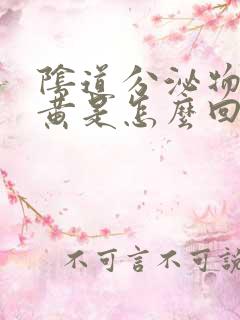 陰道分泌物
黄是怎麼回
不可言不可說